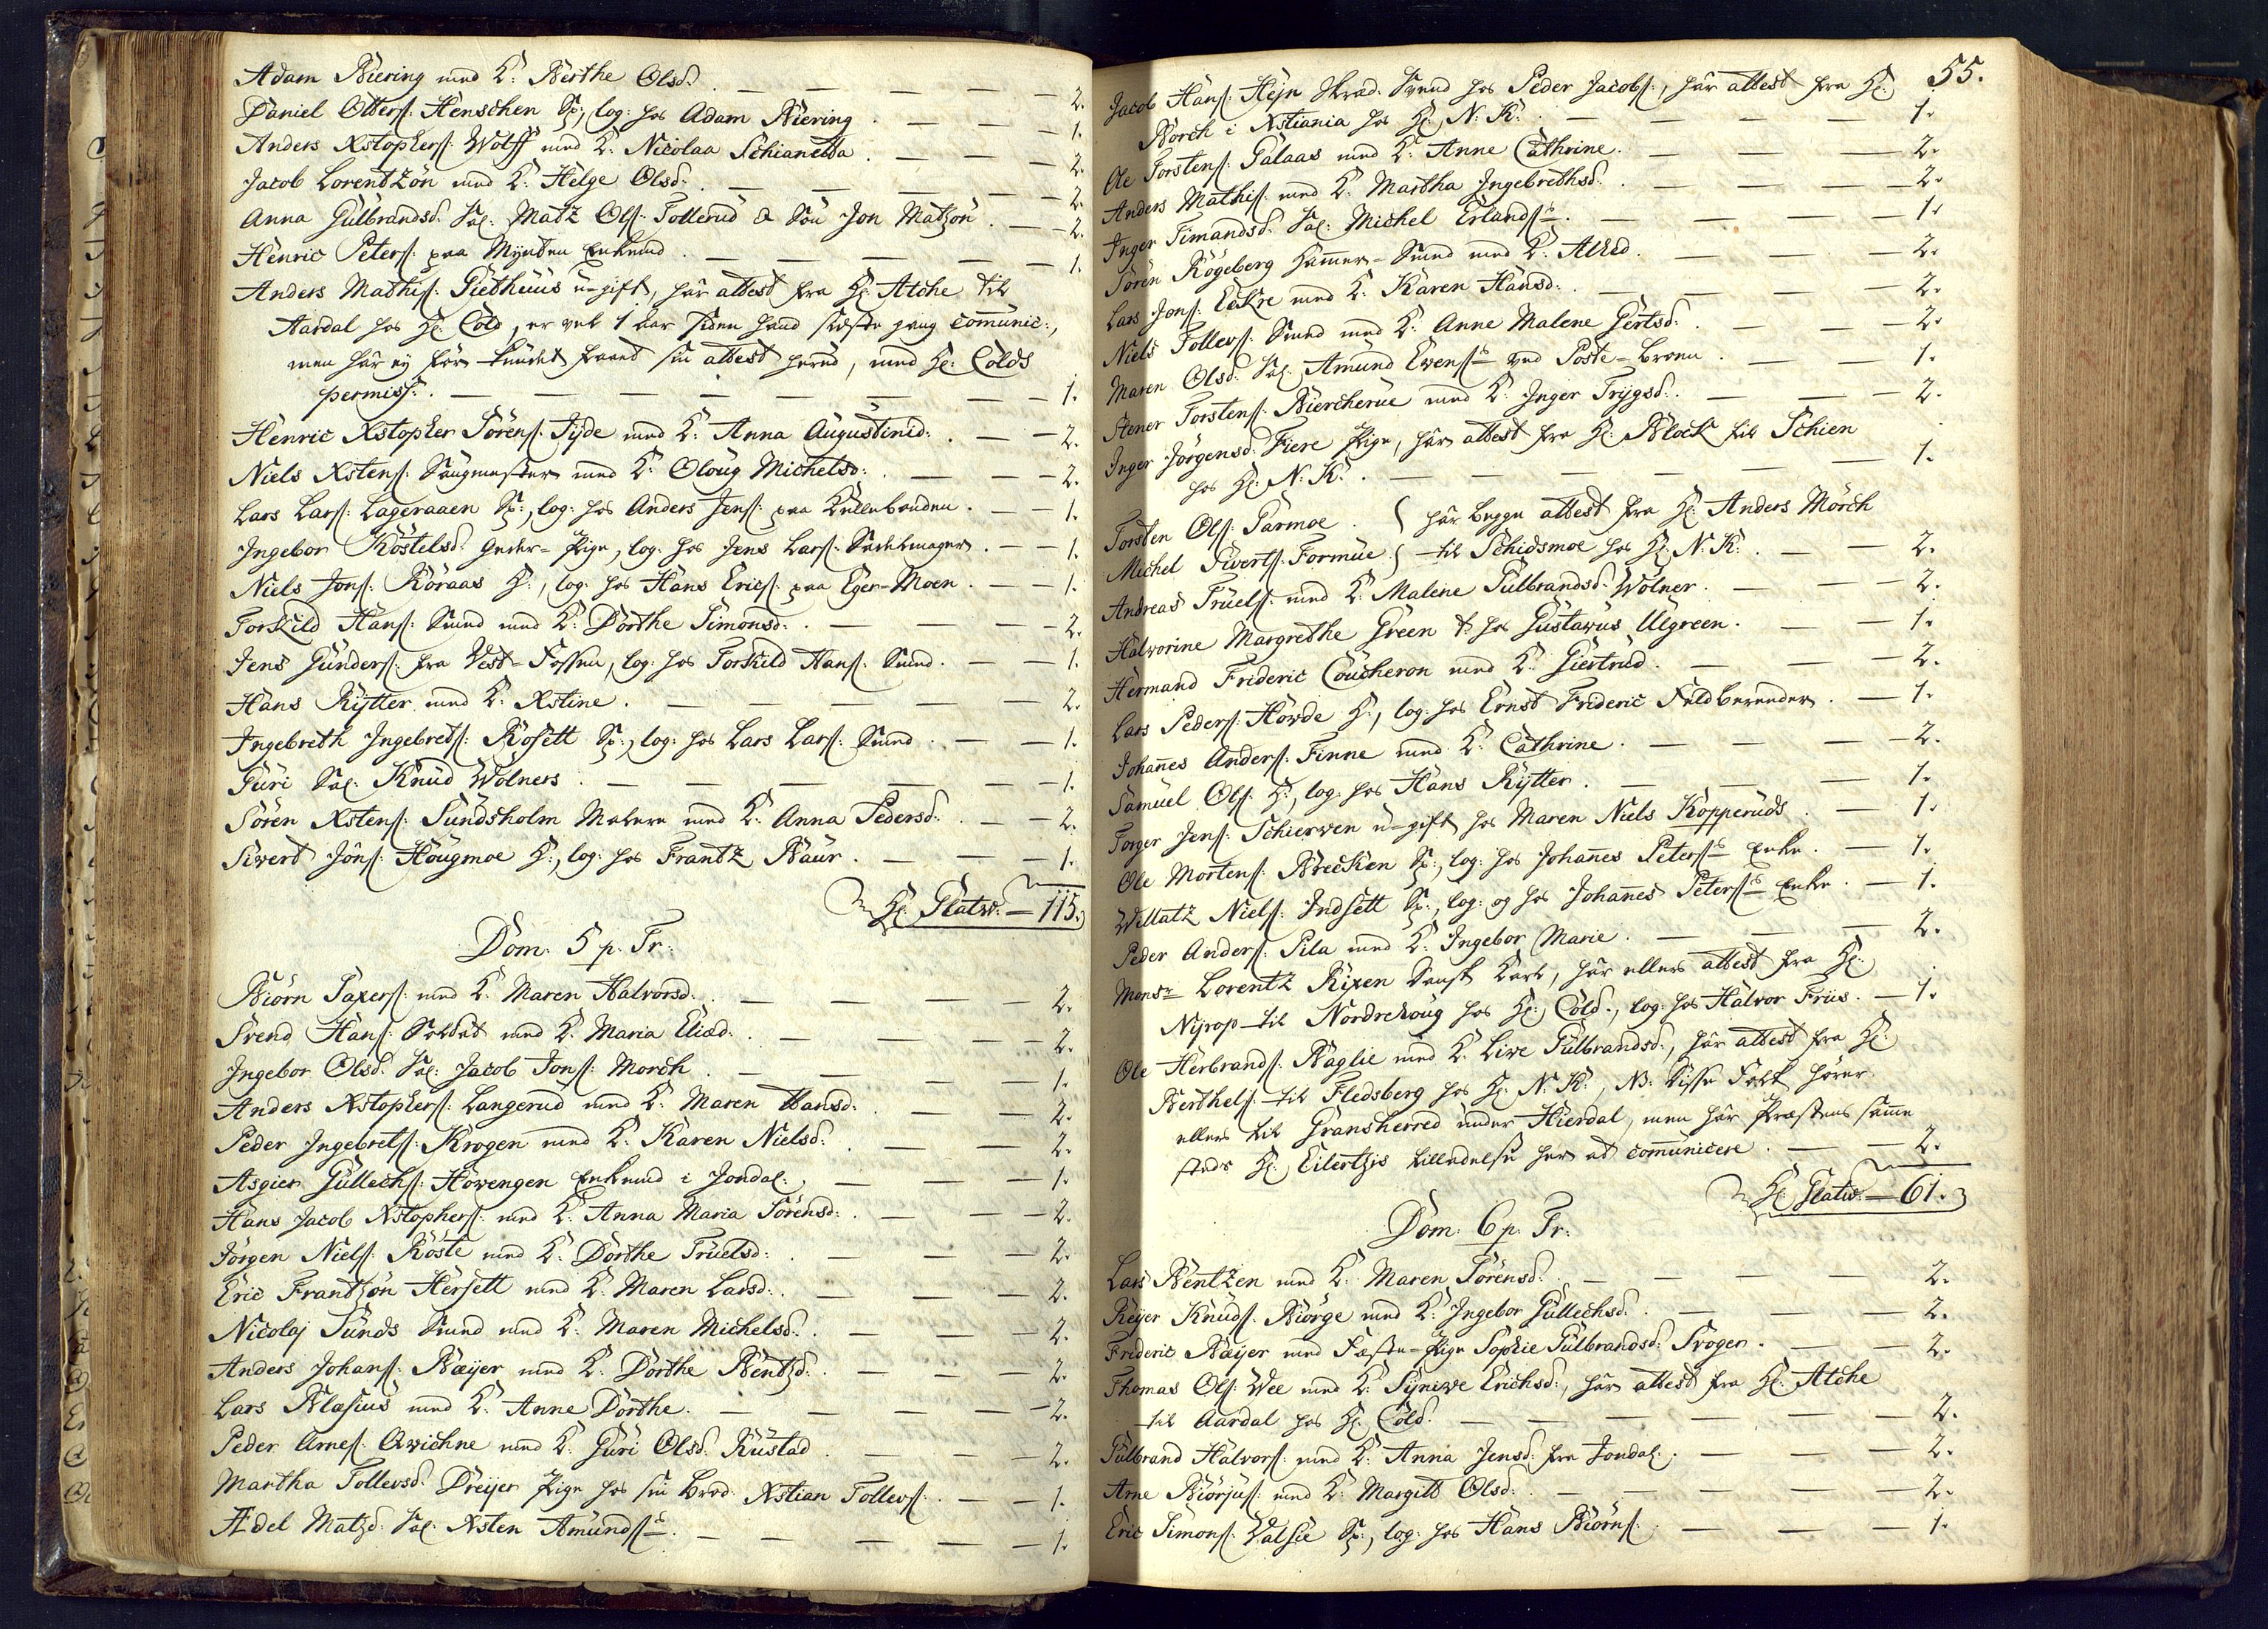 Adam Biering med K: Berthe Olsd: . — — — — — 2.
Daniel Otters: Henschen Sp:, log: hos Adam Biering . — — — 1.
Anders Xstophers: Wolff med K: Nicolaa Schianetta . — — — 2.
Jacob Lorentzön med K: Helge Olsd: . — — — — 2.
Anna Gulbrandsd: Sal: Matz Ols: Tollerud & Sön Jon Matzön . — 2.
Henric Peters: paa Mynten Enkemd . — — — — — 1.
Anders Mathis: Giethuus u-gift, har attest fra Hr: Atche til
Aardal hos Hr: Cold, er vel 1 aar siden hand sidste gang com̄unic:,
men har ej för kundet faaet sin attest herud, med Hr: Colds
permiss: . — — — — — — — — 1.
Henric Xstopher Sörens: Fyde med K: Anna Augustinid: . — — 2.
Niels Xstens: Saugmester med K: Oloug Michelsd: . — — — 2.
Lars Lars: Lageraaen Sp:, log: hos Anders Jens: paa Kellebonden . — — 1.
Ingebor Köstelsd: Peder-Pige, log: hos Jens Lars: Sadelmager . — — 1.
Niels Jons: Röraas H:, log: hos Hans Erics: paa Eger-Moen . — — 1.
Torkild Hans: Smed med K: Dorthe Simonsd: . — — — — 2.
Jens Gunders: fra Vest-Fossen, log: hos Torkild Hans: Smed . — — 1.
Hans Rytter med K: Xstine . — — — — — — 2.
Ingebreth Ingebrets: Rosett Sp:, log: hos Lars Lars: Smed . — — 1.
Guri Sal: Knud Wolners . — — — — — — 1.
Sören Xstens: Sundsholm Malere med K: Anna Pedersd: . — — 2.
Siwert Jöns: Hougmoe H:, log: hos Frantz Baur . — — — 1.
Hr: Platw: — 115.
Dom: 5 p. Tr:
Biörn Saxers: med K: Maren Halvorsd: . — — — — — 2.
Svend Hans: Soldat med K: Maria Eliæd: . — — — — 2.
Ingebor Olsd: Sal: Jacob Jons: Morch . — — — — — 1.
Anders Xstophers: Langerud med K: Maren Hansd: . — — — 2.
Peder Ingebrets: Krogen med K: Karen Nielsd: . — — — 2.
Asgier Gullechs: Howengen Enkemd i Jondal: . — — — 1.
Hans Jacob Xstophers: med K: Anna Maria Sörensd: . — — 2.
Jörgen Niels: Röste med K: Dorthe Truelsd: . — — — 2.
Eric Frantzön Hersett med K: Maren Larsd: . — — — — 2.
Nicolaj Sunds Smed med K: Maren Michelsd: . — — — 2.
Anders Johans: Bæijer med K: Dorthe Bentzd: . — — — 2.
Lars Blasius med K: Anne Dorthe . — — — — — 2.
Peder Arnes: Qwichne med K: Guri Olsd: Rustad . — — — 2.
Martha Tollevsd: Dreijer Pige hos sin Brod: Xstian Tollevs: . — — 1.
Ædel Matzd: Sal: Xsten Amunds:s . — — — — — 1.
55.
Jacob Hans: Hejn Skrad: Svend hos Peder Jacobs:, har attest fra Hr:
Borch i Xstiania hos Hr: N: K: . — — — — — 1.
Ole Torstens: Galaas med K: Anne Cathrine . — — — 2.
Anders Mathis: med K: Martha Ingebrethsd: . — — — — 2.
Inger Simandsd: Sal: Michel Erlands:s . — — — — 1.
Sören Rögeberg Ham̄er-Smed med K: Alhed . — — — 2.
Lars Jons: Eckre med K: Karen Hansd: . — — — — 2.
Niels Tollevs: Smed med K: Anne Malene Gertsd: . — — — 2.
Maren Olsd: Sal: Amund Ewens:s ved Poste-Broen . — — 1.
Stener Torstens: Biercherue med K: Inger Trygsd: . — — — 2.
Inger Jörgensd: Fiere Pige, har attest fra Hr: Block til Schien
hos Hr: N: K: . — — — — — — — 1.
Torsten Ols: Parmoe . { har begge attest fra Hr: Anders Mörch
Michel Siverts: Formue . } til Schidsmoe hos Hr: N: K: . — — 2.
Andreas Truels: med K: Malene Gulbrandsd: Wolner . — — — 2.
Halvorine Margrethe Green T: hos Gustavus Ulgreen . — — 1.
Hermand Frideric Coucheron med K: Giertrud . — — — 2.
Lars Peders: Howde H:, log: hos Ernst Frideric Feldbereder . — 1.
Johan̄es Anders: Finne med K: Cathrine . — — — — 2.
Samuel Ols: H:, log: hos Hans Rytter . — — — — 1.
Torger Jens: Schierven u-gift hos Maren Niels Kopperuds . — 1.
Ole Mortens: Brecken Sp:, log: hos Johan̄es Peters:s Enke . — 1.
Willatz Niels: Indsett Sp:, log: og hos Johan̄es Peters:s Enke . — 1.
Peder Anders: Pila med K: Ingebor Marie . — — — — 2.
Monsr: Lorentz Rixen Dansk Karl, har ellers attest fra Hr:
Nyrop til Nordrehoug hos Hr: Cold:, log: hos Halvor Friis . — 1.
Ole Herbrands: Baglie med K: Live Gulbrandsd:, har attest fra Hr:
Berthels: til Fledsberg hos Hr: N: K:, NB: Disse Folk hörer
ellers til Gransherred under Hierdal, men har Præstens sam̄e
steds Hr: Eilertzis tilladelse her at com̄unicere . — — 2.
Hr: Platw: — 61.
Dom: 6 p. Tr:
Lars Bentzen med K: Maren Sörensd: . — — — 2.
Reijer Knuds: Biörge med K: Ingebor Gullechsd: . — — — 2.
Frideric Bæijer med Fæste-Pige Sophie Gulbrandsd: Svoger . — — 2.
Thomas Ols: Wee med K: Syniwe Erichsd:, har attest fra Hr: Atche
til Aardal hos Hr: Cold: . — — — — — — 2.
Gulbrand Halvors: med K: Anna Jensd: fra Jondal: . — — — 2.
Arne Börjus: med K: Margitt Olsd: . — — — — — 2.
Eric Simons: Valsie Sp:, log: hos Hans Biörns: . — — — 1.